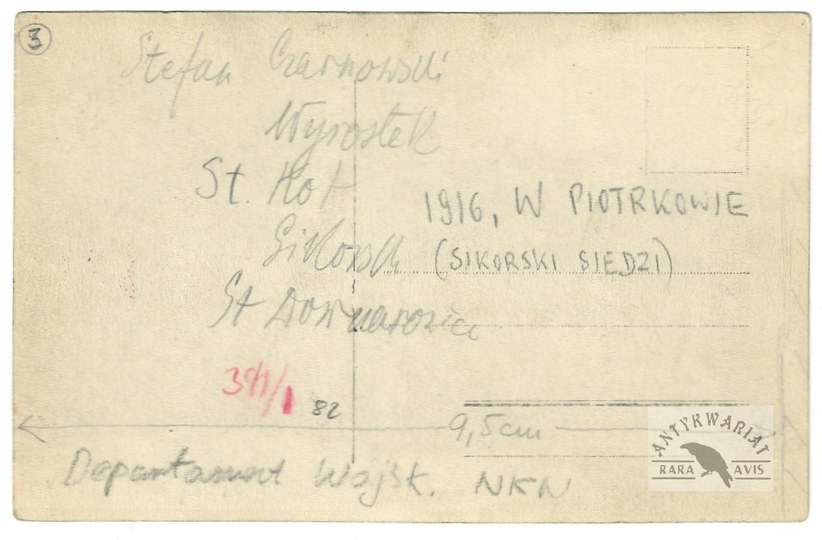 3
Stefan Czarnowski
Wyrostek
St. Kot
Sikorski
St Downarowicz
1916, W PIOTRKOWIE
(SIKORSKI SIEDZI)
82
9,5cm
Departament Wojsk. NKN
ANTYKWARIAT
RARA AVIS